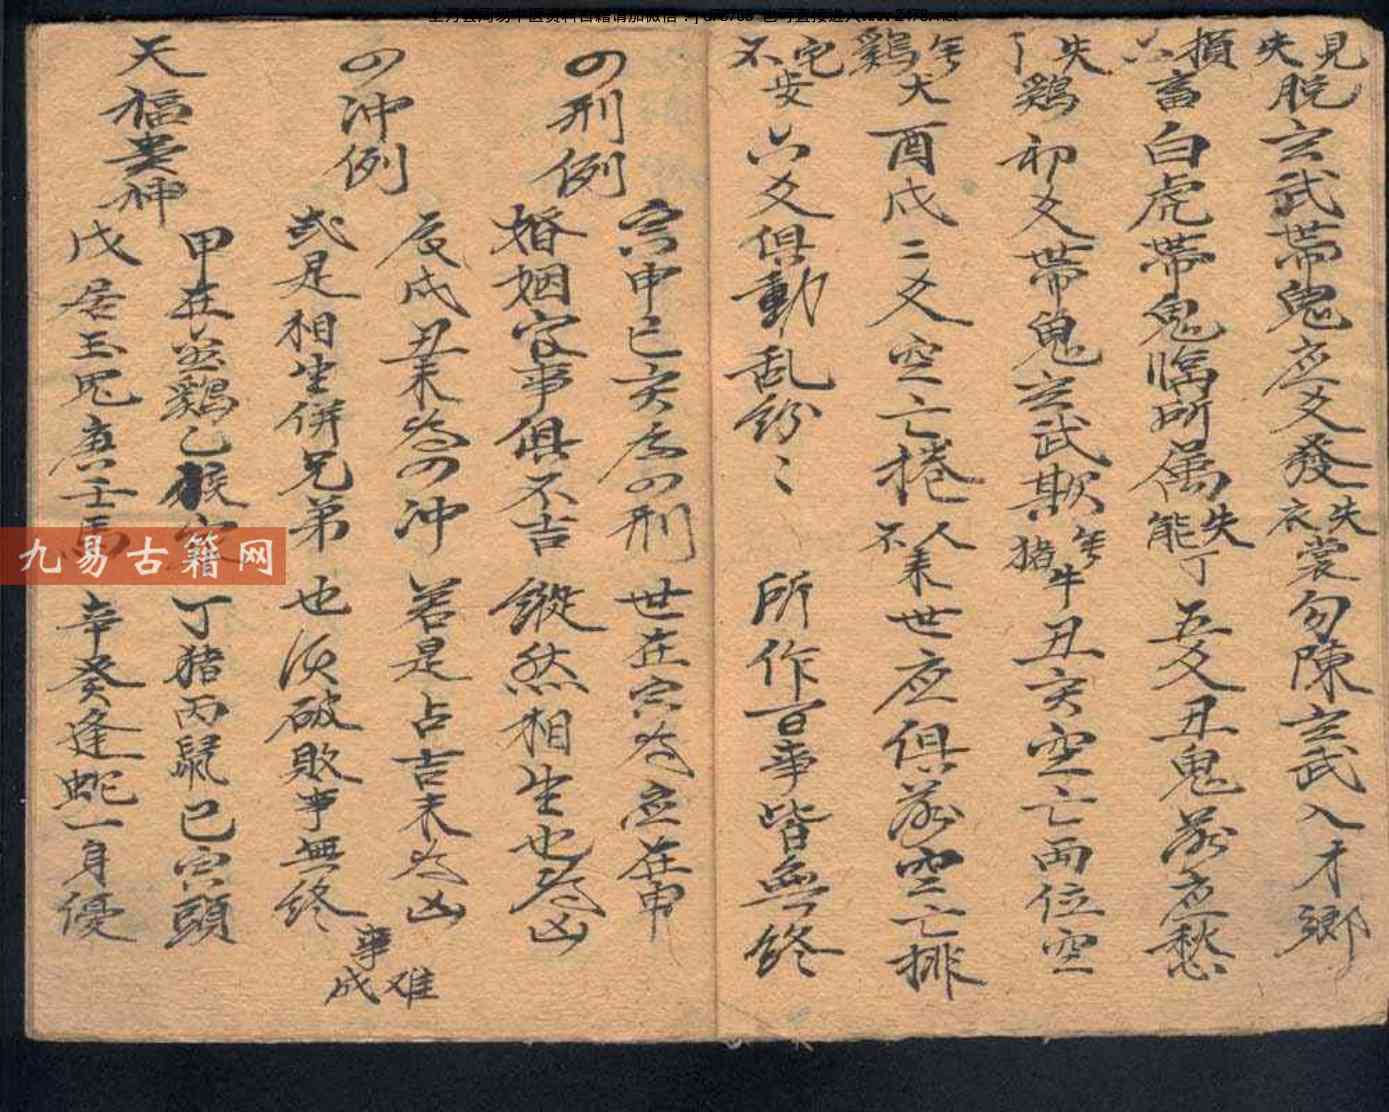 見失脫 玄武帶鬼应爻發 失衣裳勿陳玄武入才鄉
損六畜 白虎帶鬼临所属 失能丁五爻丑鬼發应愁
失了鷄 初爻帶鬼玄武欺
年猪牛 丑亥空亡兩位空
年鷄犬 酉戌二爻空亡捲
人不来 世应俱發空亡排
宅不安 六爻俱動乱紛〻 所作百事皆無終
の刑例
寅申巳亥為の刑 世在寅為应在申
婚姻官事俱不吉 縱然相生也為凶
の冲例
辰戌丑未為の冲 若是占吉未為凶
或是相生併兄弟也须破敗事無終
事难成
天福貴神
甲在 鷄乙猴 丁猪丙鼠己寅頭
戊居玉兎庚壬馬 辛癸逢蛇一身優
九易古籍网